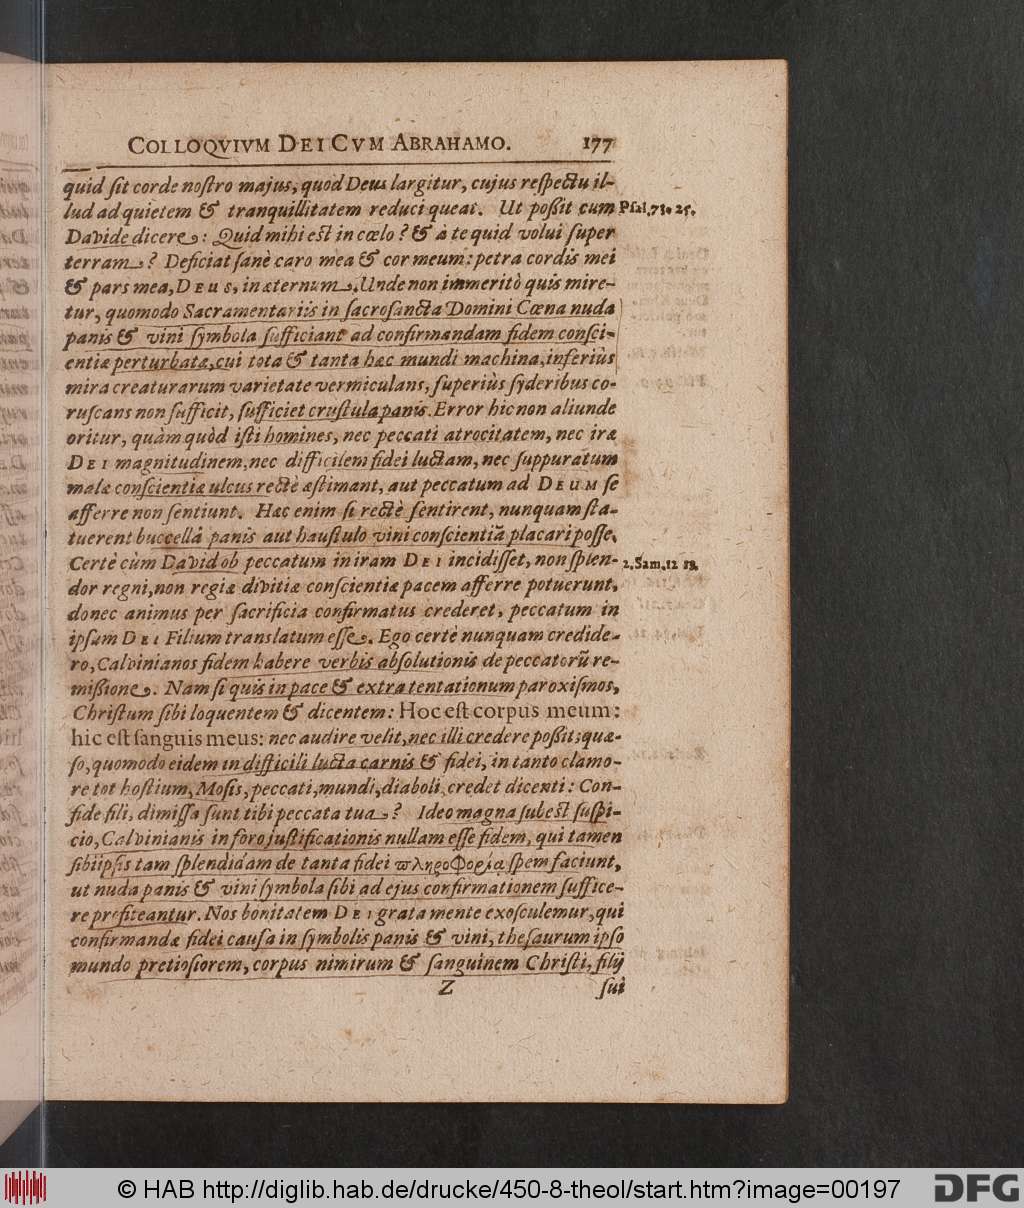 COLLOQVIVM DEI CVM ABRAHAMO. 177
quid ſit corde noſtro majus, quod Deus largitur, cujus reſpectu il-
lud ad quietem & tranquillitatem reduci queat. Ut poßit cum
Psal. 73. 25.
Davide dicere: Quid mihi est in cœlo? & à te quid volui ſuper
terram? Deficiat ſanè caro mea & cor meum: petra cordis mei
& pars mea, DEUS, in æternum. Unde non immeritò quis mire-
tur, quomodo Sacramentariis in ſacroſancta Domini Cœna nuda
panis & vini ſymbola ſufficiant ad confirmandam fidem conſci-
entiæ perturbatæ, cui tota & tanta hæc mundi machina, inferiùs
mira creaturarum varietate vermiculans, ſuperiùs ſyderibus co-
ruſcans non ſufficit, ſufficiet cruſtula panis. Error hic non aliunde
oritur, quàm quòd iſti homines, nec peccati atrocitatem, nec iræ
DEI magnitudinem, nec difficilem fidei luctam, nec ſuppuratum
malæ conſcientiæ ulcus rectè æſtimant, aut peccatum ad DEUM ſe
afferre non ſentiunt. Hæc enim ſi rectè ſentirent, nunquam ſta-
tuerent buccellâ panis aut hauſtulo vini conſcientiã placari poſſe.
Certè cùm David ob peccatum in iram DEI incidiſſet, non ſplen-
2. Sam. 12 13.
dor regni, non regiæ divitiæ conſcientiæ pacem afferre potuerunt,
donec animus per ſacrificia confirmatus crederet, peccatum in
ipſum DEI Filium translatum eſſe. Ego certè nunquam credide-
ro, Calvinianos fidem habere verbis abſolutionis de peccatorũ re-
mißione. Nam ſi quis in pace & extra tentationum paroxiſmos,
Chriſtum ſibi loquentem & dicentem: Hoc eſt corpus meum:
hic eſt ſanguis meus: nec audire velit, nec illi credere poßit; quæ-
ſo, quomodo eidem in difficili lucta carnis & fidei, in tanto clamo-
re tot hoſtium, Moſis, peccati, mundi, diaboli, credet dicenti: Con-
fide fili, dimiſſa ſunt tibi peccata tua? Ideo magna ſubeſt ſuſpi-
cio, Calvinianis in foro juſtificationis nullam eſſe fidem, qui tamen
ſibiipſis tam ſplendidam de tanta fidei πληροφορίᾳ ſpem faciunt,
ut nuda panis & vini ſymbola ſibi ad ejus confirmationem ſuffice-
re profiteantur. Nos bonitatem DEI grata mente exoſculemur, qui
confirmandæ fidei cauſa in ſymbolis panis & vini, theſaurum ipſo
mundo pretioſiorem, corpus nimirum & ſanguinem Chriſti, filij
Z ſui
© HAB http://diglib.hab.de/drucke/450-8-theol/start.htm?image=00197
DFG